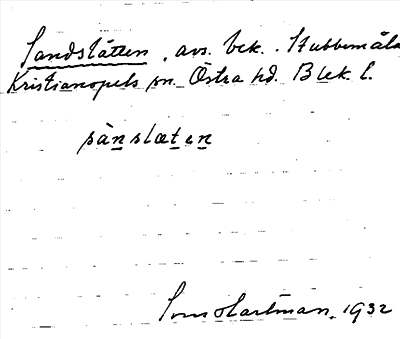 Sandslätten, avs. bek. Stubbemåla
Kristianopels sn. Östra hd. Blek. l.
sànslæten
Hartman. 1932